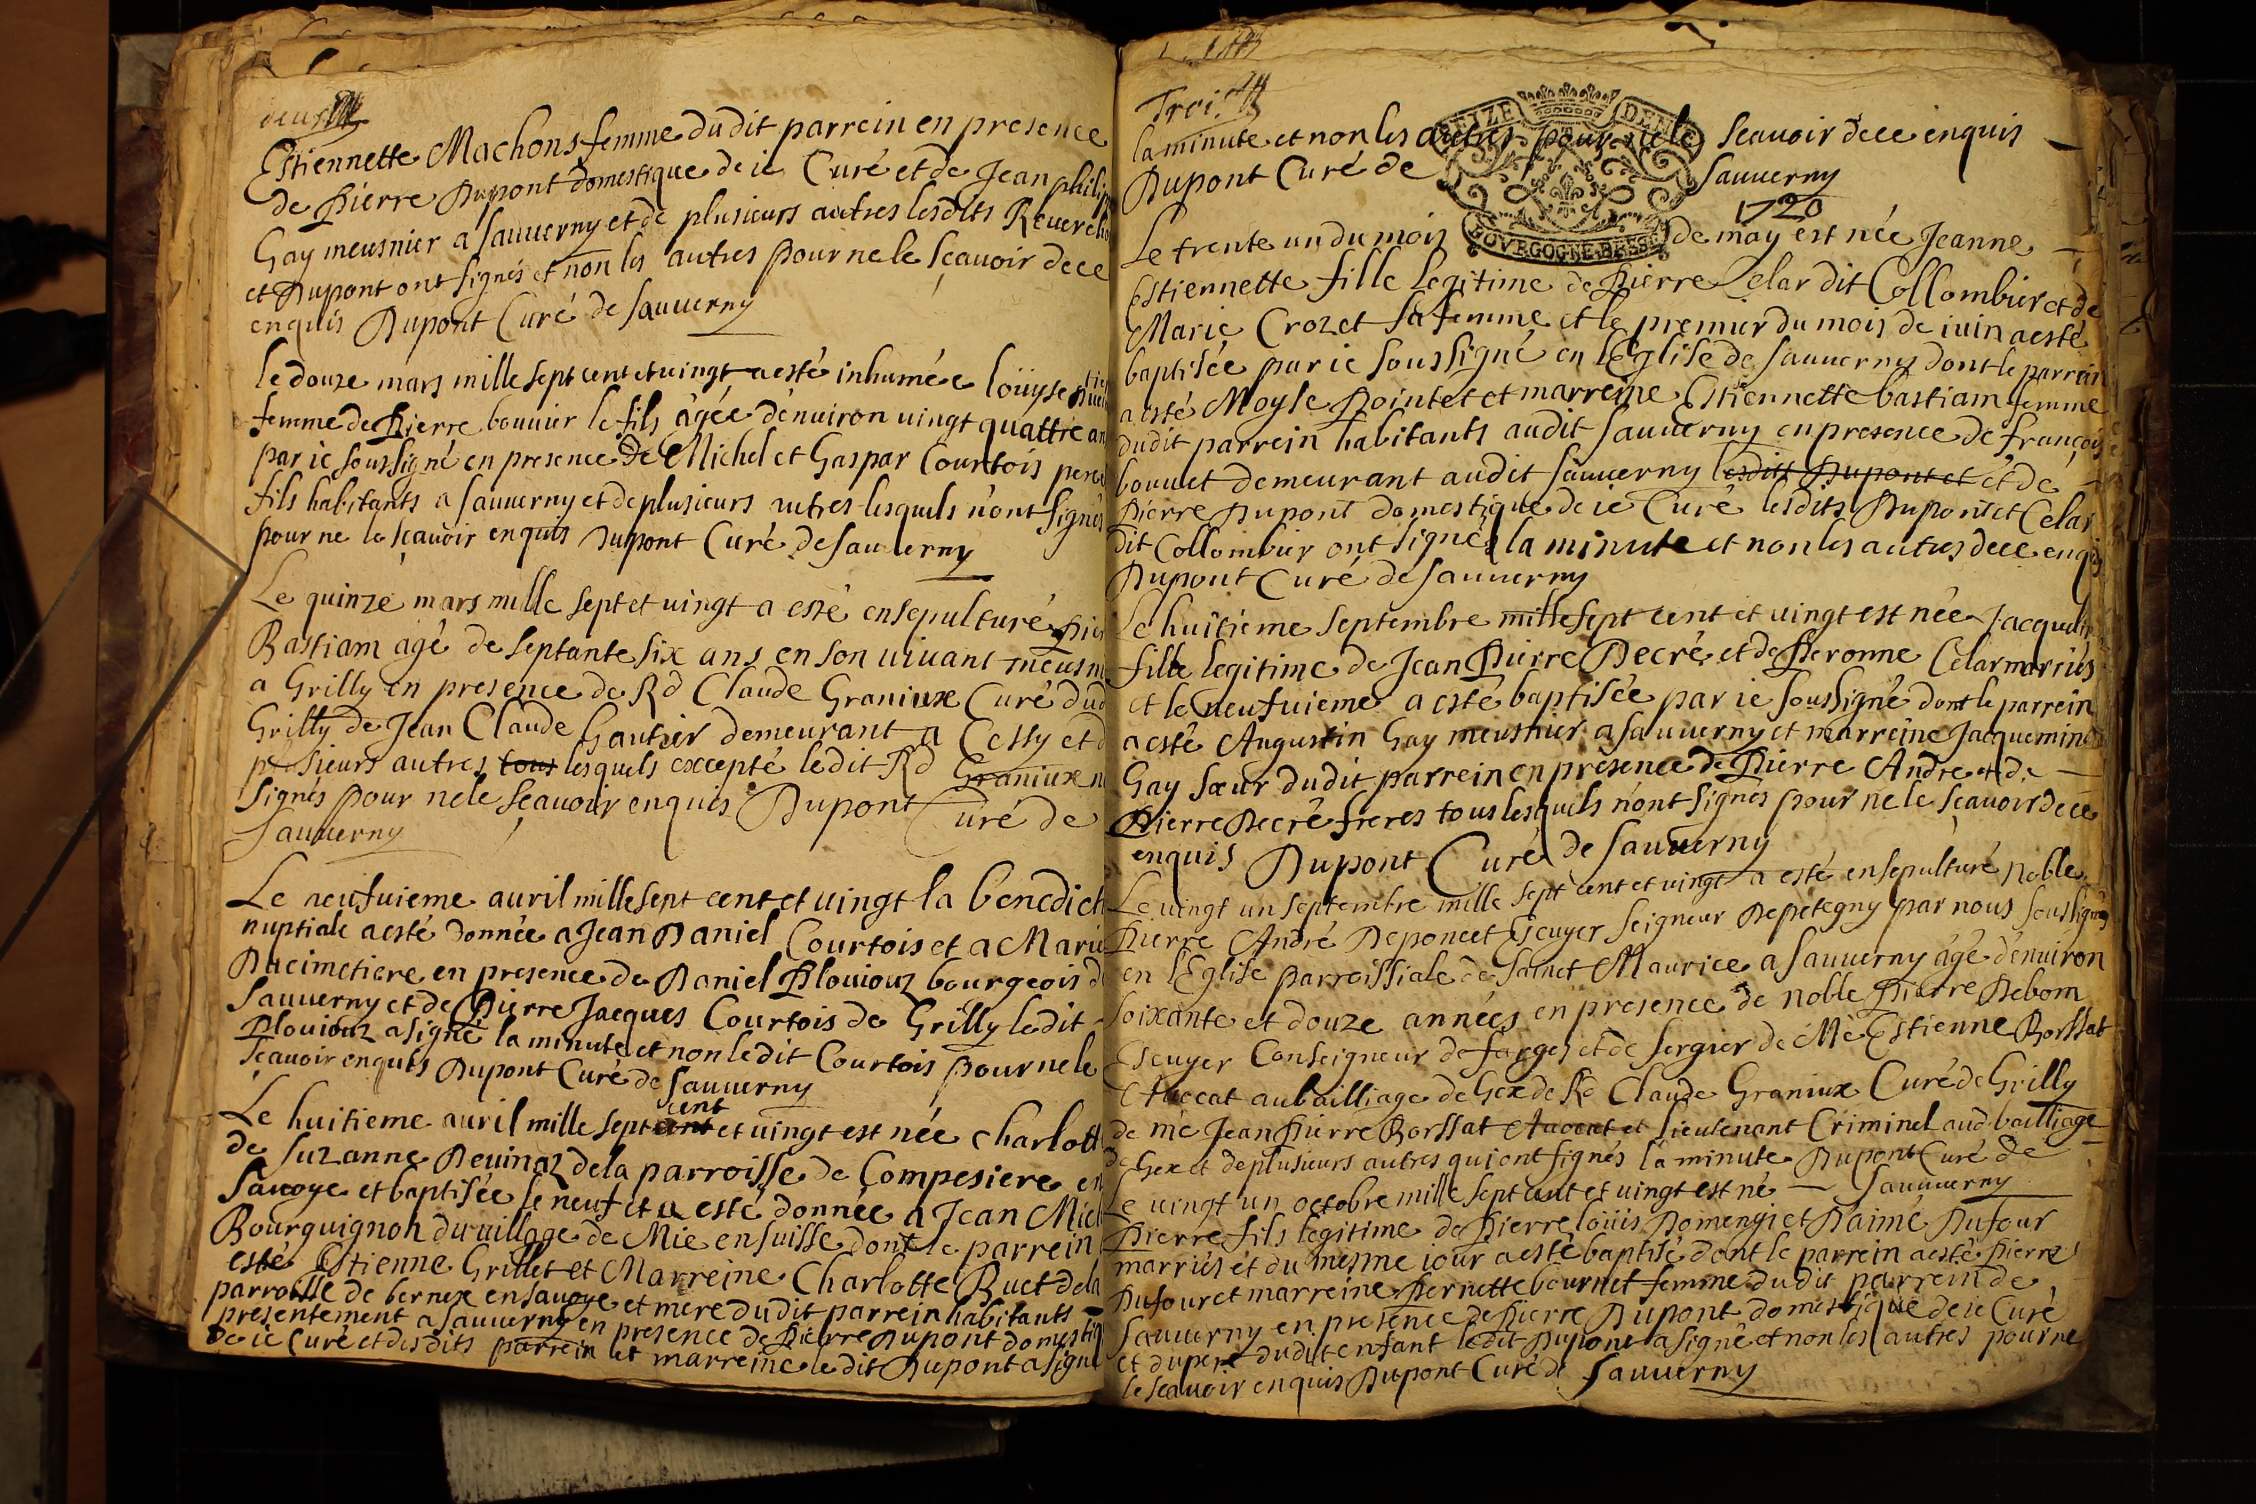 deus
Estiennette Machons femme du dit parrein en presence
de Pierre Dupont domestique de ie Curé et de Jean philip
Gay meusnier a Sauverny et de plusieurs autres lesdits Reverchon
et Dupont ont signés et non les autres pour ne le sçavoir de ce
enquis Dupont Curé de Sauverny
le douze mars mille sept cent et vingt a esté inhumée loüyse
femme de Pierre bouvier le fils âgée d'environ vingt quattre an
par ie soussigné en presence de Michel et Gaspar Courtois pere
fils habitants a Sauverny et de plusieurs autres lesquels n'ont signés
pour ne le sçavoir enquis Dupont Curé de Sauverny
Le quinze mars mille sept et vingt a esté ensepulturé Pier
Bastiam agé de septante six ans en son vivant meusni
a Grilly en presence de Rd Claude Graniux Curé dud
Grilly de Jean Claude Gautier demeurant a Cessy et d
plusieurs autres tous lesquels excepté ledit Rd Graniux n
signés pour ne le sçavoir enquis Dupont Curé de
Sauverny
Le neufuieme avril mille sept cent et vingt la benedict
nuptiale a esté donnée a Jean Daniel Courtois et a Marie
Ducimetiere en presence de Daniel Plouiouz bourgeois d
Sauverny et de Pierre Jacques Courtois de Grilly ledit
Plouiouz a signé la minute et non ledit Courtois pour ne le
sçavoir enquis Dupont Curé de Sauverny
Le huitieme avril mille sept cent et vingt est née Charlott
de Suzanne Deuinaz de la parroisse de Compesiere en
Savoye et baptisée le neuf et a esté donnée a Jean Mich
Bourguignon du village de Mie en suisse dont le parrein
esté Estienne Grillet et Marreine Charlotte Ruet de la
parroisse de bernex en savoye et mere du dit parrein habitants
presentement a Sauverny en presence de Pierre Dupont domestiq
de ie Curé et desdits parrein et marreine ledit Dupont a signé
Troi.
la minute et non les autres pour ne le sçavoir de ce enquis
Dupont Curé de Sauverny
SEIZE DEN
BOURGOGNE BRESSE
1720
Le trente un du mois de may est née Jeanne
Estiennette fille legitime de Pierre Celar dit Collombier et de
Marie Crozet sa femme et le premier du mois de iuin a esté
baptisée par ie soussigné en l'Eglise de Sauverny dont le parrein
a esté Moyse Pointet et marreine Estiennette bastiam femme
du dit parrein habitants audit Sauverny en presence de françois
bouuet demeurant audit Sauverny lesdits Dupont et et de
Pierre Dupont domestique de ie Curé lesdits Dupont et Celar
dit Collombier ont signés la minute et non les autres de ce enquis
Dupont Curé de Sauverny
Le huitieme septembre mille sept cent et vingt est née Jacquelin
fille legitime de Jean Pierre Decré et de Peronne Celar marriés
et le neufuieme a esté baptisée par ie soussigné dont le parrein
a esté Augustin Gay meusnier a Sauverny et marreine Jacquemine
Gay sœur du dit parrein en presence de Pierre André et de
Pierre Decré freres tous lesquels n'ont signés pour ne le sçavoir de ce
enquis Dupont Curé de Sauverny
Le vingt un septembre mille sept cent et vingt a esté ensepulturé Noble
Pierre André Deponcet Escuyer Seigneur Depetegny par nous soussignés
en l'Eglise parroissiale de Sainct Maurice a Sauverny âgé d'environ
soixante et douze années en presence de noble Pierre Debom
Escuyer Conseigneur de farges et de sergier de Me Estienne Borssat
Avocat au bailliage de Gex de Rd Claude Graniux Curé de Grilly
de me Jean Pierre Borssat Avocat et lieutenant Criminel aud bailliage
de Gex et de plusieurs autres qui ont signés la minute Dupont Curé de
Sauverny
Le vingt un octobre mille sept cent et vingt est né
Pierre fils legitime de Pierre loüis Domengi et D'aimé Dufour
marriés et du mesme iour a esté baptisé dont le parrein a esté Pierre
Dufour et marreine Pernette bournet femme du dit parrein de
Sauverny en presence de Pierre Dupont domestique de ie Curé
et du pere du dit enfant ledit Dupont a signé et non les autres pour ne
le sçavoir enquis Dupont Curé de Sauverny